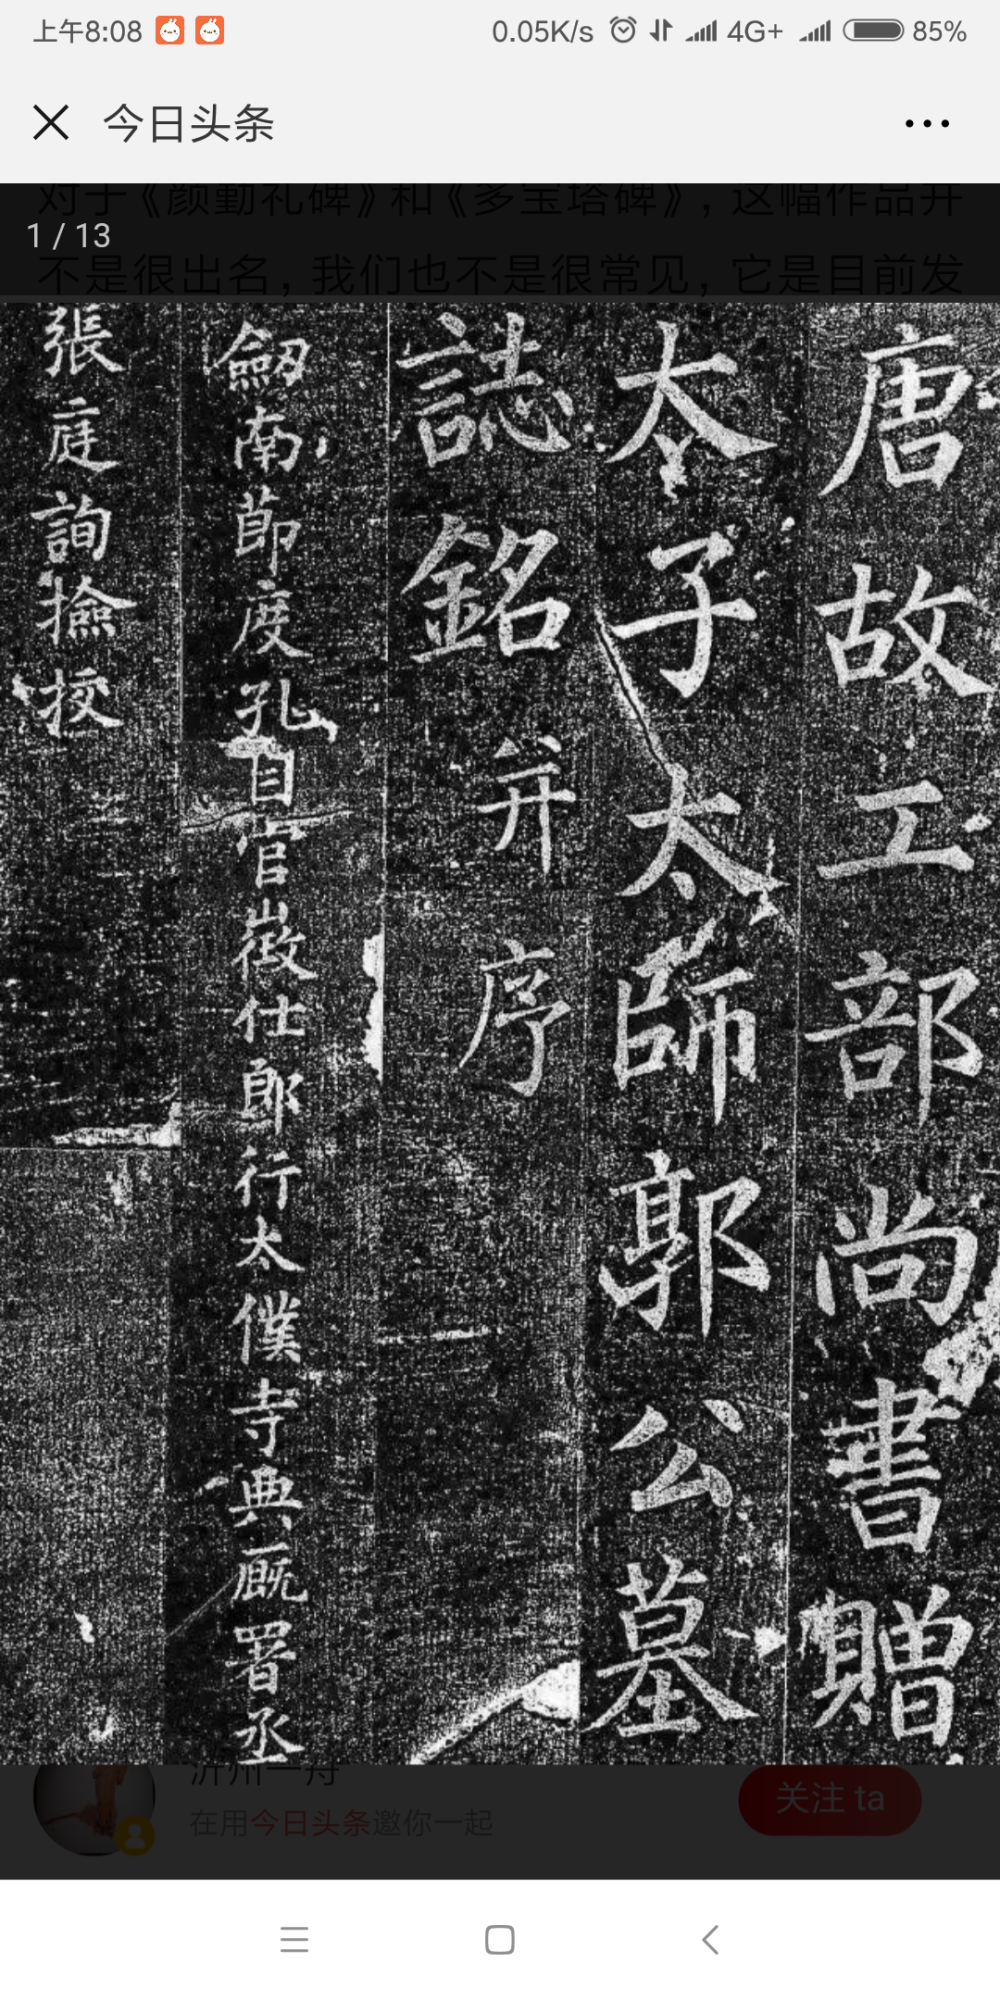 上午8:08 0.05K/s 4G+ 85%
今日头条
对于《颜勤礼碑》和《多宝塔碑》，这幅作品并
1 / 13
不是很出名，我们也不是很常见，它是目前发
唐故工部尚書贈
太子太師郭公墓
誌銘并序
劔南節度孔目官徵仕郎行太僕寺典廐署丞
張庭詢撿挍
沂州一舟
在用今日头条邀你一起
关注 ta